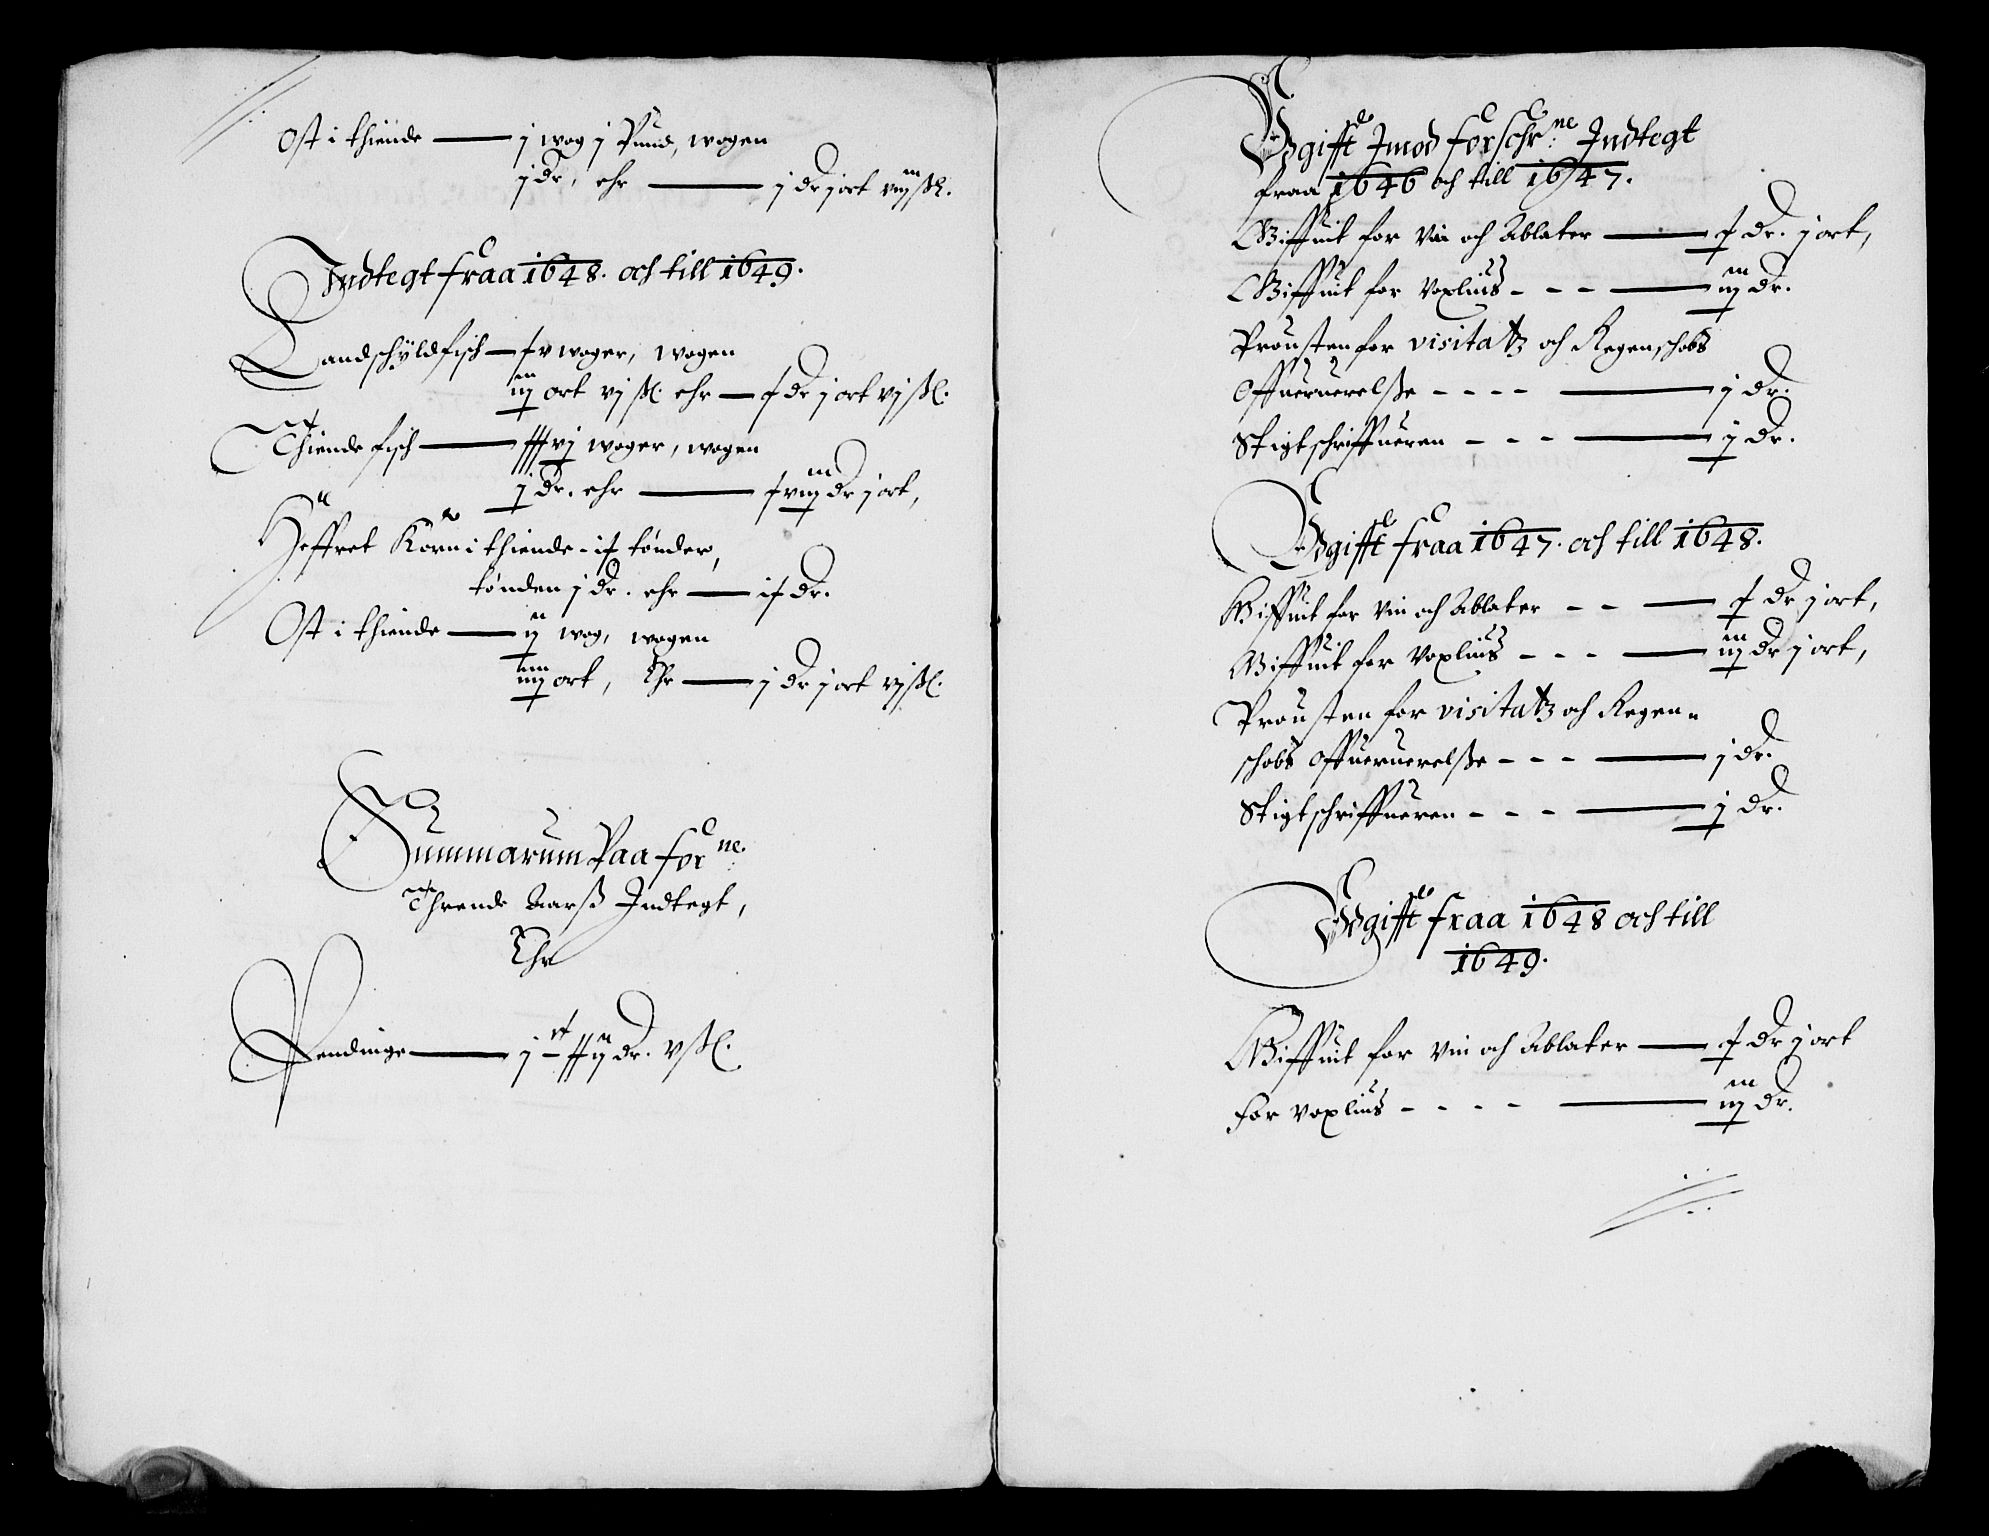 Ost i thiende — j wog j Pund, wogen
j dr, ehr — j dr j ort viij ßl.
Indtegt fraa 1648. och till 1649.
Landschÿldfisch — xv woger, wogen
iij ort vj ßl. ehr — x dr j ort vj ßl.
Thiende fisch — xxxvj woger, wogen
j dr. ehr — xviij dr j ort,
Heffret Korn i thiende - ix tønder,
tønden j dr. ehr — ix dr.
Ost i thiende — ij wog, wogen
iiij ort, Ehr — j dr j ort vj ßl.
Summarum Paa for ne.
Thrende Aarß Indtegt,
Ehr
Pendinge — j xx ij dr. v ßl.
Wdgifft Imod forschr ne: Indtegt
fraa 1646 och till 1647.
Wiffuit for Vin och Ablater — x dr. j ort,
Wiffuit for Voxlius - - - — iij dr.
Prousten for visitatz och Regenschobs
Offueruerelße - - - - — j dr.
Stigtschriffueren - - - — j dr.
Wdgifft fraa 1647. och till 1648.
Wiffuit for Vin och Ablater - - — x dr j ort,
Wiffuit for Voxlius - - - — iij dr j ort,
Prousten for visitatz och Regen=
schobs Offueruerelße - - - — j dr.
Stigtschriffueren - - - — j dr.
Wdgifft fraa 1648 och till
1649.
Wiffuit for Vin och Ablater — x dr j ort
for Voxlius - - - - — iij dr.